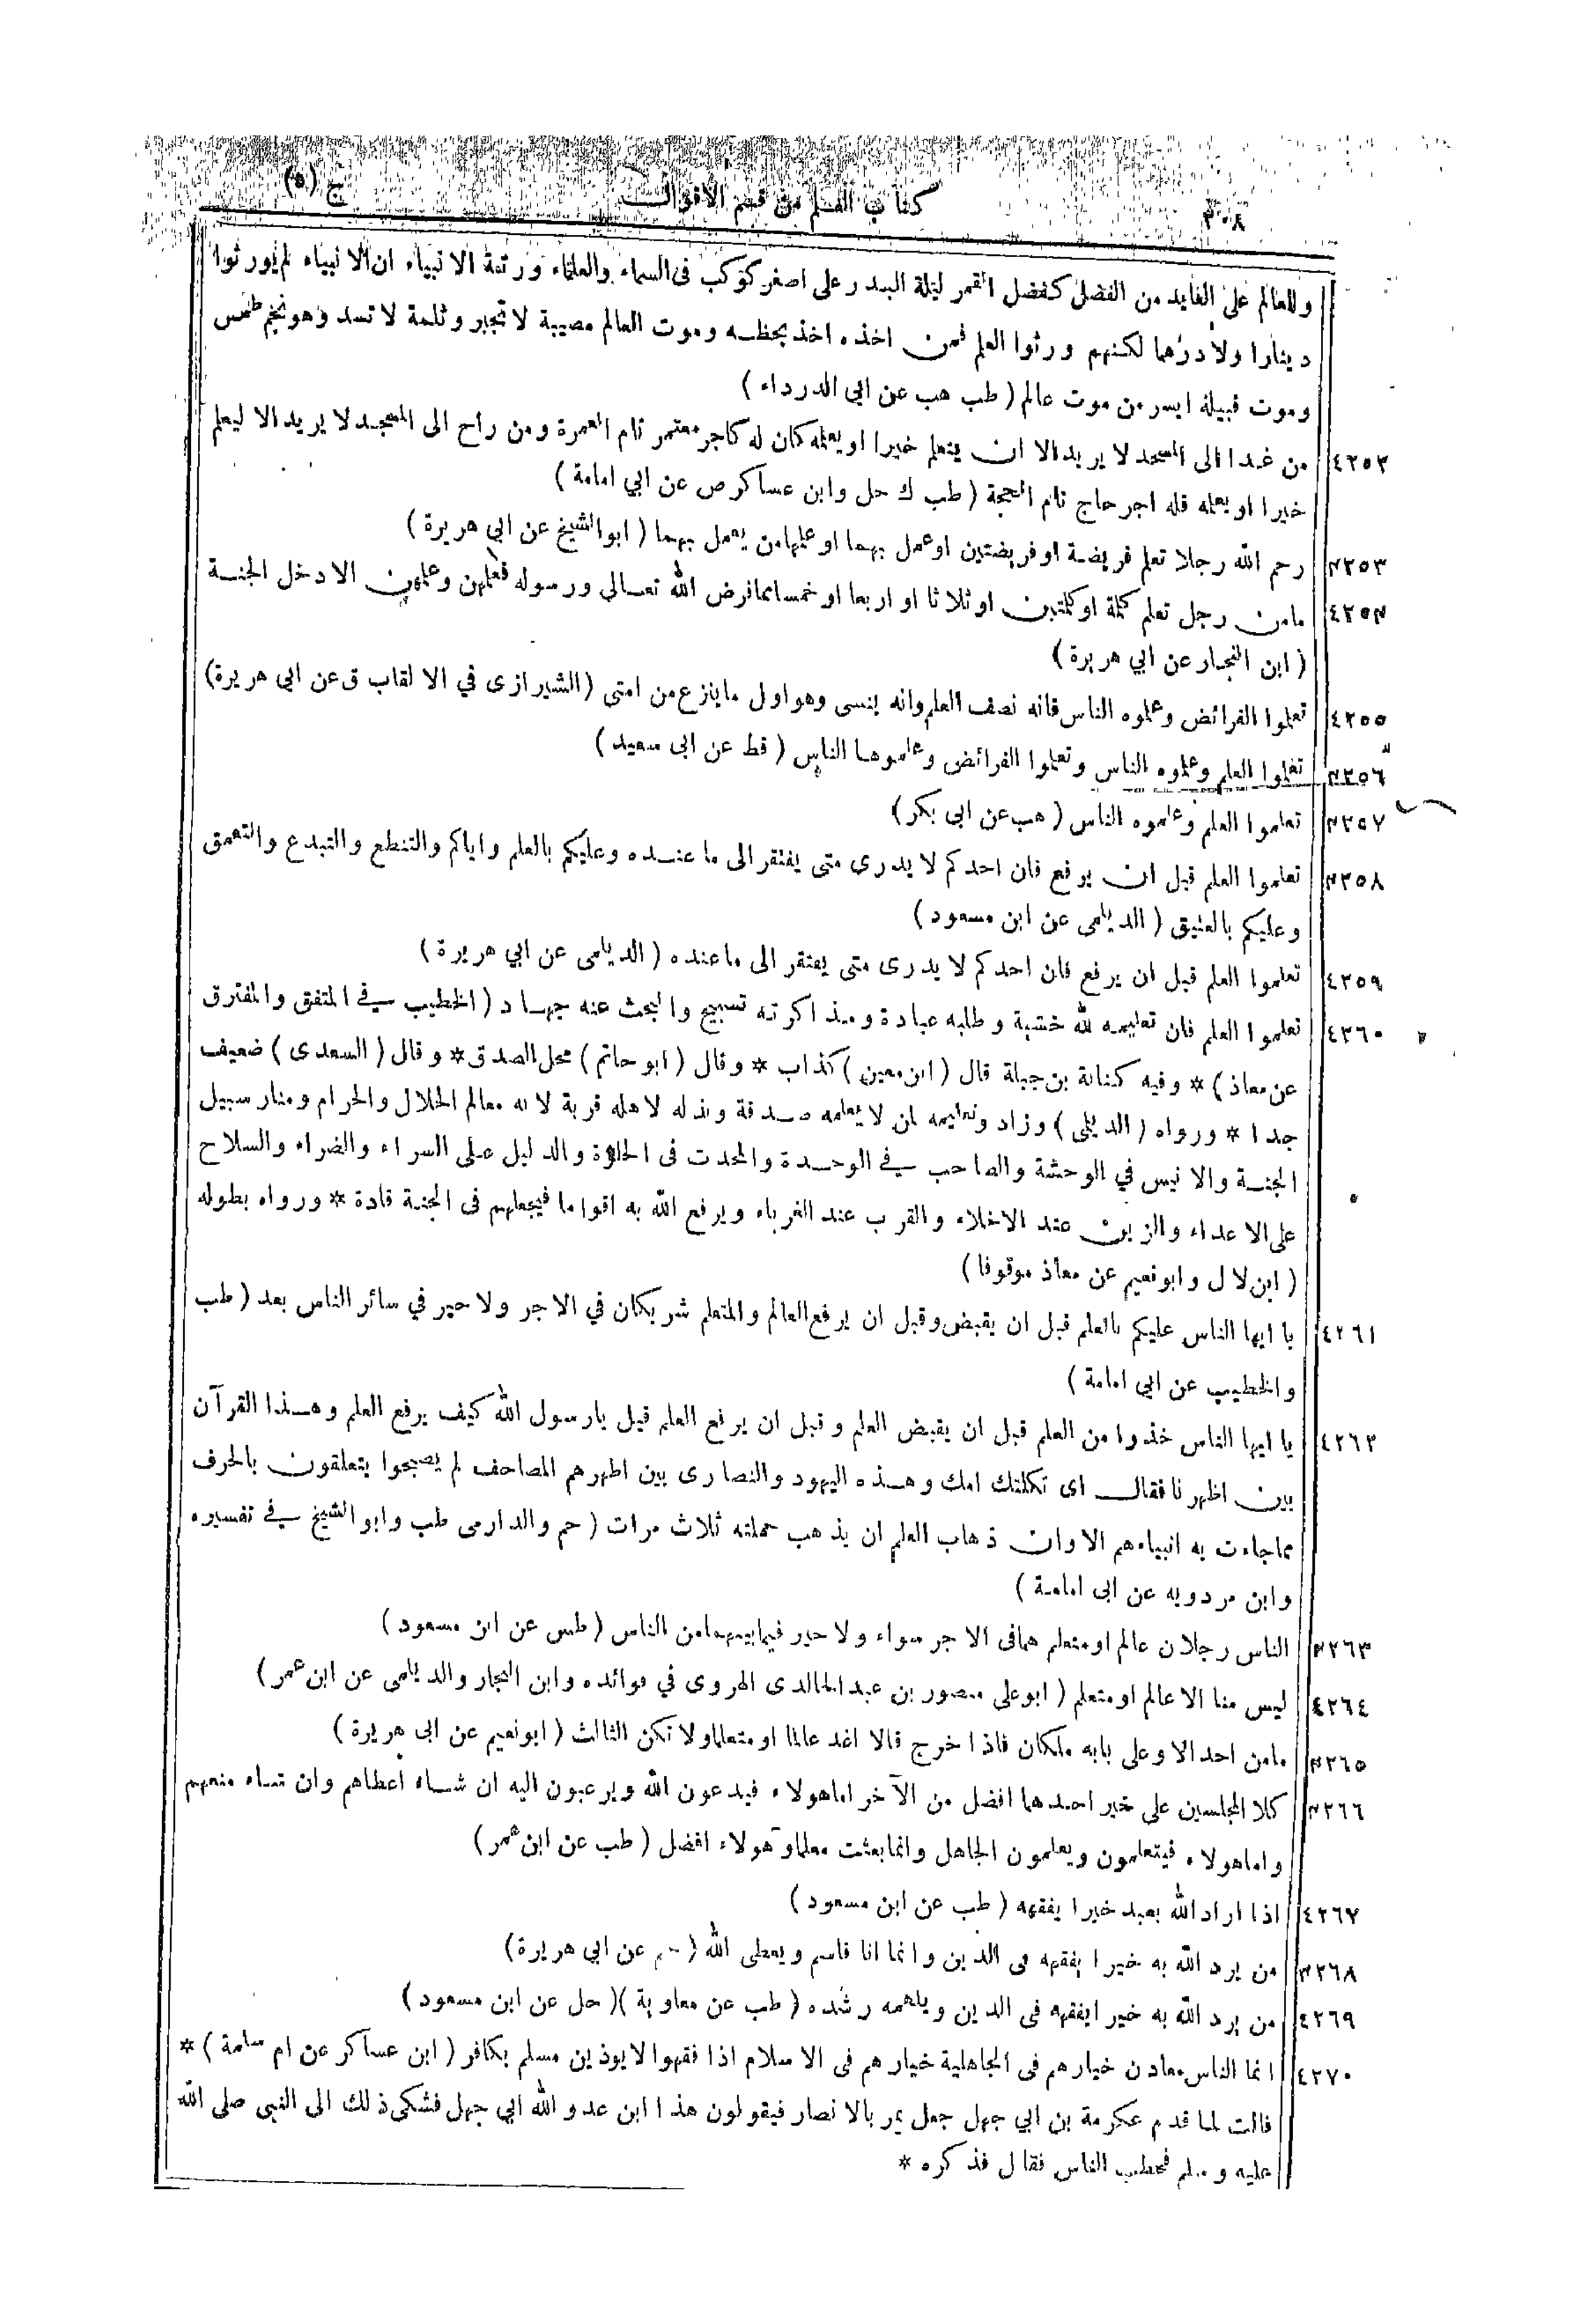 ٣٠٨ كتاب العلم من قسم الاقوال ج (٥)
وللعالم على العابد من الفضل كفضل القمر ليلة البدر على اصغر كوكب فى السماء والعلماء ورثة الانبياء ان الانبياء لم يورثوا
دينارا ولا درهما لكنهم ورثوا العلم فمن اخذه اخذ بحظه وموت العالم مصيبة لا تجبر وثلمة لا تسد وهو نجم طمس
وموت قبيلة ايسر من موت عالم (طب هب عن ابي الدرداء)
٤٢٥٢ من غدا الى المسجد لا يريد الا ان يتعلم خيرا او يعلمه كان له كاجر معتمر تام العمرة ومن راح الى المسجد لا يريد الا ليعلم
خيرا او يعلمه فله اجر حاج تام الحجة (طب ك حل وابن عساكر ص عن ابي امامة)
٤٢٥٣ رحم الله رجلا تعلم فريضة او فريضتين او عمل بهما او علمهما من يعمل بهما (ابو الشيخ عن ابي هريرة)
٤٢٥٤ مامن رجل تعلم كلمة او كلمتين او ثلاثا او اربعا او خمسا مما فرض الله تعالى ورسوله فعلمهن وعلمهن الا دخل الجنة
(ابن النجار عن ابي هريرة)
٤٢٥٥ تعلموا الفرائض وعلموه الناس فانه نصف العلم وانه ينسى وهو اول ما ينزع من امتى (الشيرازى في الالقاب ق عن ابى هريرة)
٤٢٥٦ تعلموا العلم وعلموه الناس وتعلموا الفرائض وعلموها الناس (قط عن ابى سعيد)
٤٢٥٧ تعلموا العلم وعلموه الناس (هب عن ابى بكر)
٤٢٥٨ تعلموا العلم قبل ان يرفع فان احدكم لا يدرى متى يفتقر الى ما عنده وعليكم بالعلم واياكم والتنطع والتبدع والتعمق
وعليكم بالعتيق (الديلمى عن ابن مسعود)
٤٢٥٩ تعلموا العلم قبل ان يرفع فان احدكم لا يدرى متى يفتقر الى ما عنده (الديلمى عن ابي هريرة)
٤٢٦٠ تعلموا العلم فان تعليمه لله خشية وطلبه عبادة ومذاكرته تسبيح والبحث عنه جهاد (الخطيب في المتفق والمفترق
عن معاذ) * وفيه كنانة بن جبلة قال (ابن معين) كذاب * وقال (ابو حاتم) محل الصدق * وقال (السعدى) ضعيف
جدا * ورواه (الديلمى) وزاد وتعليمه لمن لا يعلمه صدقة وبذله لاهله قربة لانه معالم الحلال والحرام ومنار سبيل
الجنة والانيس في الوحشة والصاحب في الوحدة والمحدث فى الخلوة والدليل على السراء والضراء والسلاح
على الاعداء والزين عند الاخلاء والقرب عند الغرباء ويرفع الله به اقواما فيجعلهم فى الجنة قادة * ورواه بطوله
(ابن لال وابو نعيم عن معاذ موقوفا)
٤٢٦١ يا ايها الناس عليكم بالعلم قبل ان يقبض وقبل ان يرفع العالم والمتعلم شريكان في الاجر ولا خير في سائر الناس بعد (طب
والخطيب عن ابي امامة)
٤٢٦٢ يا ايها الناس خذوا من العلم قبل ان يقبض العلم وقبل ان يرفع العلم قيل يارسول الله كيف يرفع العلم وهذا القرآن
بين اظهرنا فقال اى ثكلتك امك وهذه اليهود والنصارى بين اظهرهم المصاحف لم يصبحوا يتعلقون بالحرف
مما جاءت به انبياءهم الا وان ذهاب العلم ان يذهب حملته ثلاث مرات (حم والدارمى طب وابو الشيخ في تفسيره
وابن مردويه عن ابى امامة)
٤٢٦٣ الناس رجلان عالم او متعلم هما فى الاجر سواء ولا خير فيما بينهما من الناس (طس عن ابن مسعود)
٤٢٦٤ ليس منا الا عالم او متعلم (ابو على منصور بن عبد الخالدى الهروى في فوائده وابن النجار والديلمى عن ابن عمر)
٤٢٦٥ مامن احد الا وعلى بابه ملكان فاذا خرج قالا اغد عالما او متعلما ولا تكن الثالث (ابو نعيم عن ابى هريرة)
٤٢٦٦ كلا المجلسين على خير احدهما افضل من الآخر اما هولاء فيدعون الله ويرغبون اليه ان شاء اعطاهم وان شاء منعهم
واما هولاء فيتعلمون ويعلمون الجاهل وانما بعثت معلما وهولاء افضل (طب عن ابن عمر)
٤٢٦٧ اذا اراد الله بعبد خيرا يفقهه (طب عن ابن مسعود)
٤٢٦٨ من يرد الله به خيرا يفقهه فى الدين وانما انا قاسم ويعطى الله (حم عن ابي هريرة)
٤٢٦٩ من يرد الله به خيرا يفقهه فى الدين ويلهمه رشده (طب عن معاوية)(حل عن ابن مسعود)
٤٢٧٠ انما الناس معادن خيارهم فى الجاهلية خيارهم فى الاسلام اذا فقهوا لا يوذين مسلم بكافر (ابن عساكر عن ام سلمة) *
قالت لما قدم عكرمة بن ابي جهل جعل يمر بالانصار فيقولون هذا ابن عدو الله ابي جهل فشكى ذلك الى النبى صلى الله
عليه وسلم فخطب الناس فقال فذكره *